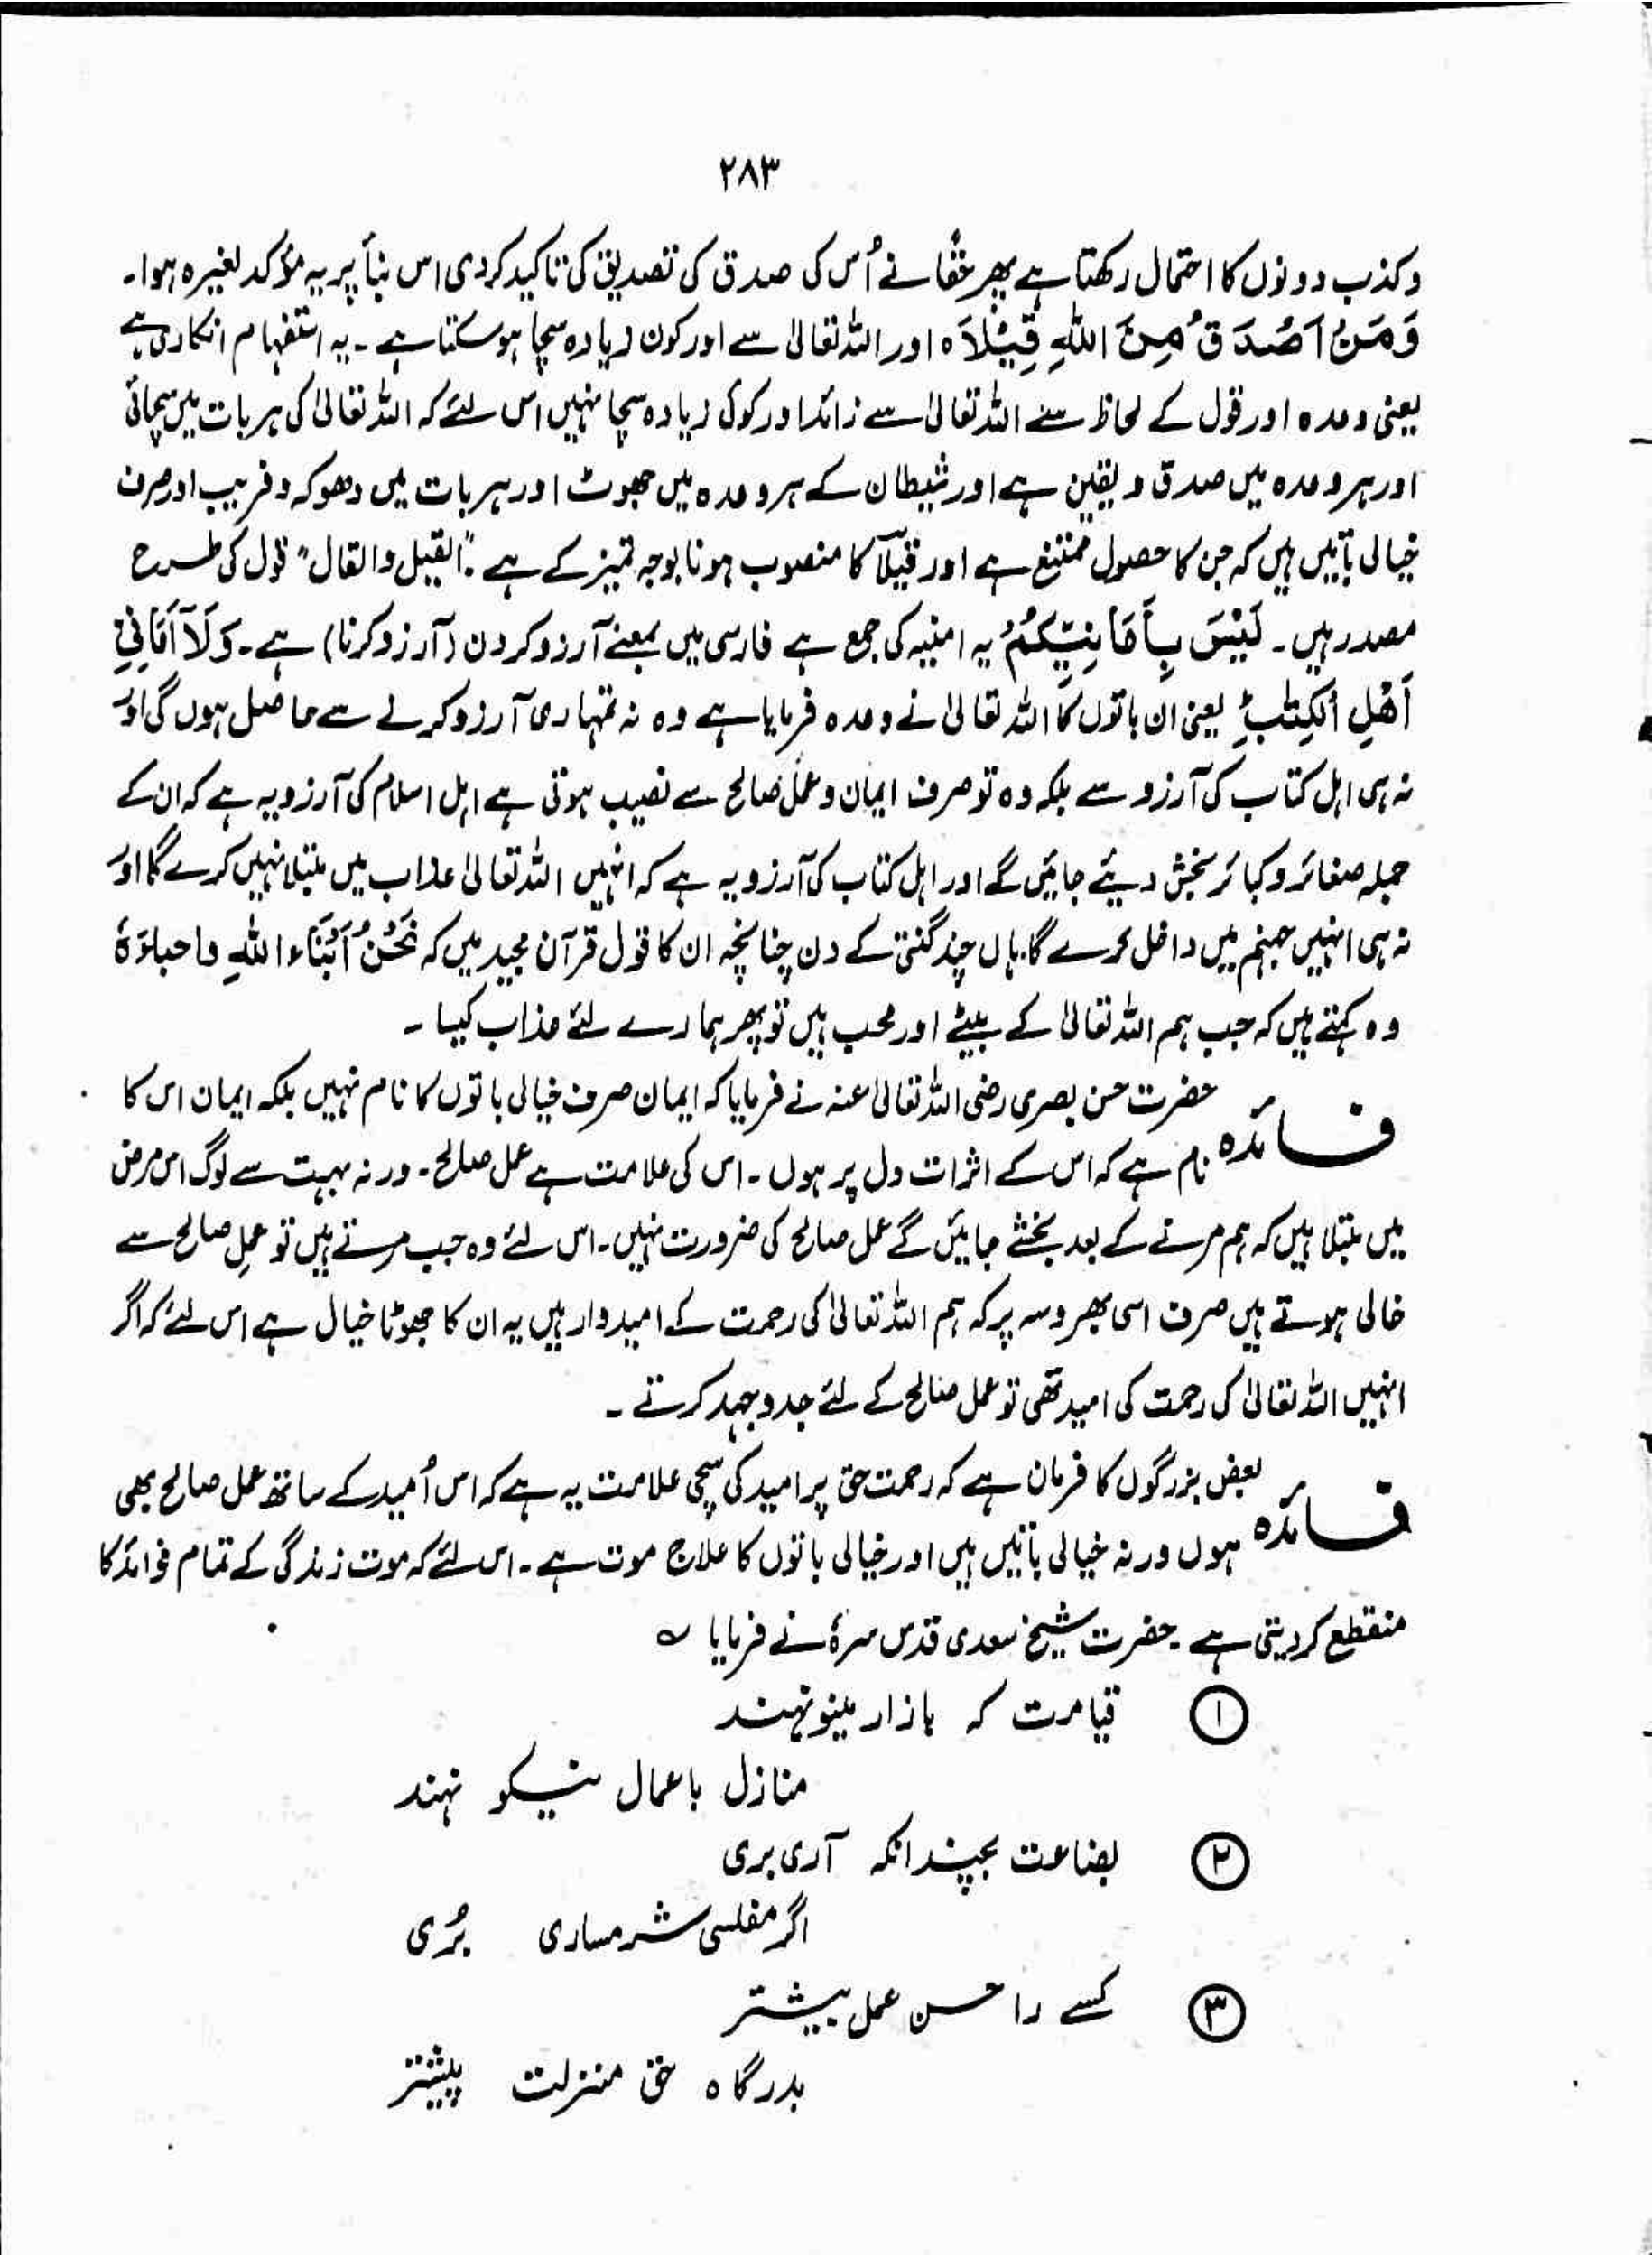 ۲۸۳
وکذب دونوں کا احتمال رکھتا ہے پھر حقًا نے اُس کی صدق کی تصدیق کی تاکید کردی اس بنأ پر یہ مؤکد لغیرہ ہوا۔
وَمَنْ اَصْدَقُ مِنَ اللّٰهِ قِيْلًا ہ اور اللہ تعالیٰ سے اور کون زیادہ سچا ہو سکتا ہے ۔ یہ استفہام انکاری ہے
یعنی وعدہ اور قول کے لحاظ سے اللہ تعالیٰ سے زائد اور کوئی زیادہ سچا نہیں اس لئے کہ اللہ تعالیٰ کی ہر بات میں سچائی
اور ہر وعدہ میں صدق و یقین ہے اور شیطان کے ہر وعدہ میں جھوٹ اور ہر بات میں دھوکہ و فریب اور صرف
خیالی باتیں ہیں کہ جن کا حصول ممتنع ہے اور قیلاً کا منصوب ہونا بوجہ تمیز کے ہے "القیل والقال" قول کی طرح
مصدر ہیں ۔ لَيْسَ بِاَمَانِيِّكُمْ یہ امنیہ کی جمع ہے فارسی میں بمعنے آرزو کردن (آرزو کرنا) ہے ۔ وَلَآ اَمَانِيِّ
اَهْلِ الْكِتٰبِ ؕ یعنی ان باتوں کا اللہ تعالیٰ نے وعدہ فرمایا ہے وہ نہ تمہاری آرزو کرنے سے حاصل ہوں گی اور
نہ ہی اہل کتاب کی آرزو سے بلکہ وہ تو صرف ایمان و عمل صالح سے نصیب ہوتی ہے اہل اسلام کی آرزو یہ ہے کہ ان کے
جملہ صغائر و کبائر بخش دیئے جائیں گے اور اہل کتاب کی آرزو یہ ہے کہ انہیں اللہ تعالیٰ عذاب میں مبتلا نہیں کرے گا اور
نہ ہی انہیں جہنم میں داخل کرے گا۔ ہاں چند گنتی کے دن چنانچہ ان کا قول قرآن مجید میں کہ نَحْنُ اَبْنَاءُ اللّٰهِ واحباؤہٗ
وہ کہتے ہیں کہ جب ہم اللہ تعالیٰ کے بیٹے اور محب ہیں تو پھر ہمارے لئے عذاب کیسا ۔
فائدہ حضرت حسن بصری رضی اللہ تعالیٰ عنہ نے فرمایا کہ ایمان صرف خیالی باتوں کا نام نہیں بلکہ ایمان اس کا
نام ہے کہ اس کے اثرات دل پر ہوں ۔ اس کی علامت ہے عمل صالح ۔ ورنہ بہت سے لوگ اس مرض
میں مبتلا ہیں کہ ہم مرنے کے بعد بخشے جائیں گے عمل صالح کی ضرورت نہیں ۔ اس لئے وہ جب مرتے ہیں تو عملِ صالح سے
خالی ہوتے ہیں صرف اسی بھروسہ پر کہ ہم اللہ تعالیٰ کی رحمت کے امیدوار ہیں یہ ان کا جھوٹا خیال ہے اس لئے کہ اگر
انہیں اللہ تعالیٰ کی رحمت کی امید تھی تو عمل صالح کے لئے جدوجہد کرتے ۔
فائدہ بعض بزرگوں کا فرمان ہے کہ رحمت حق پر امید کی سچی علامت یہ ہے کہ اس اُمید کے ساتھ عمل صالح بھی
ہوں ورنہ خیالی باتیں ہیں اور خیالی باتوں کا علاج موت ہے ۔ اس لئے کہ موت زندگی کے تمام فوائد کا
منقطع کر دیتی ہے ۔ حضرت شیخ سعدی قدس سرہٗ نے فرمایا ؎
① قیامت کہ بازار مینو نہند
منازل باعمال نیکو نہند
② بضاعت بچندانکہ آری بری
اگر مفلسی شرمساری بُری
③ کسے را حسن عمل بیشتر
بدرگاہ حق منزلت پیشتر